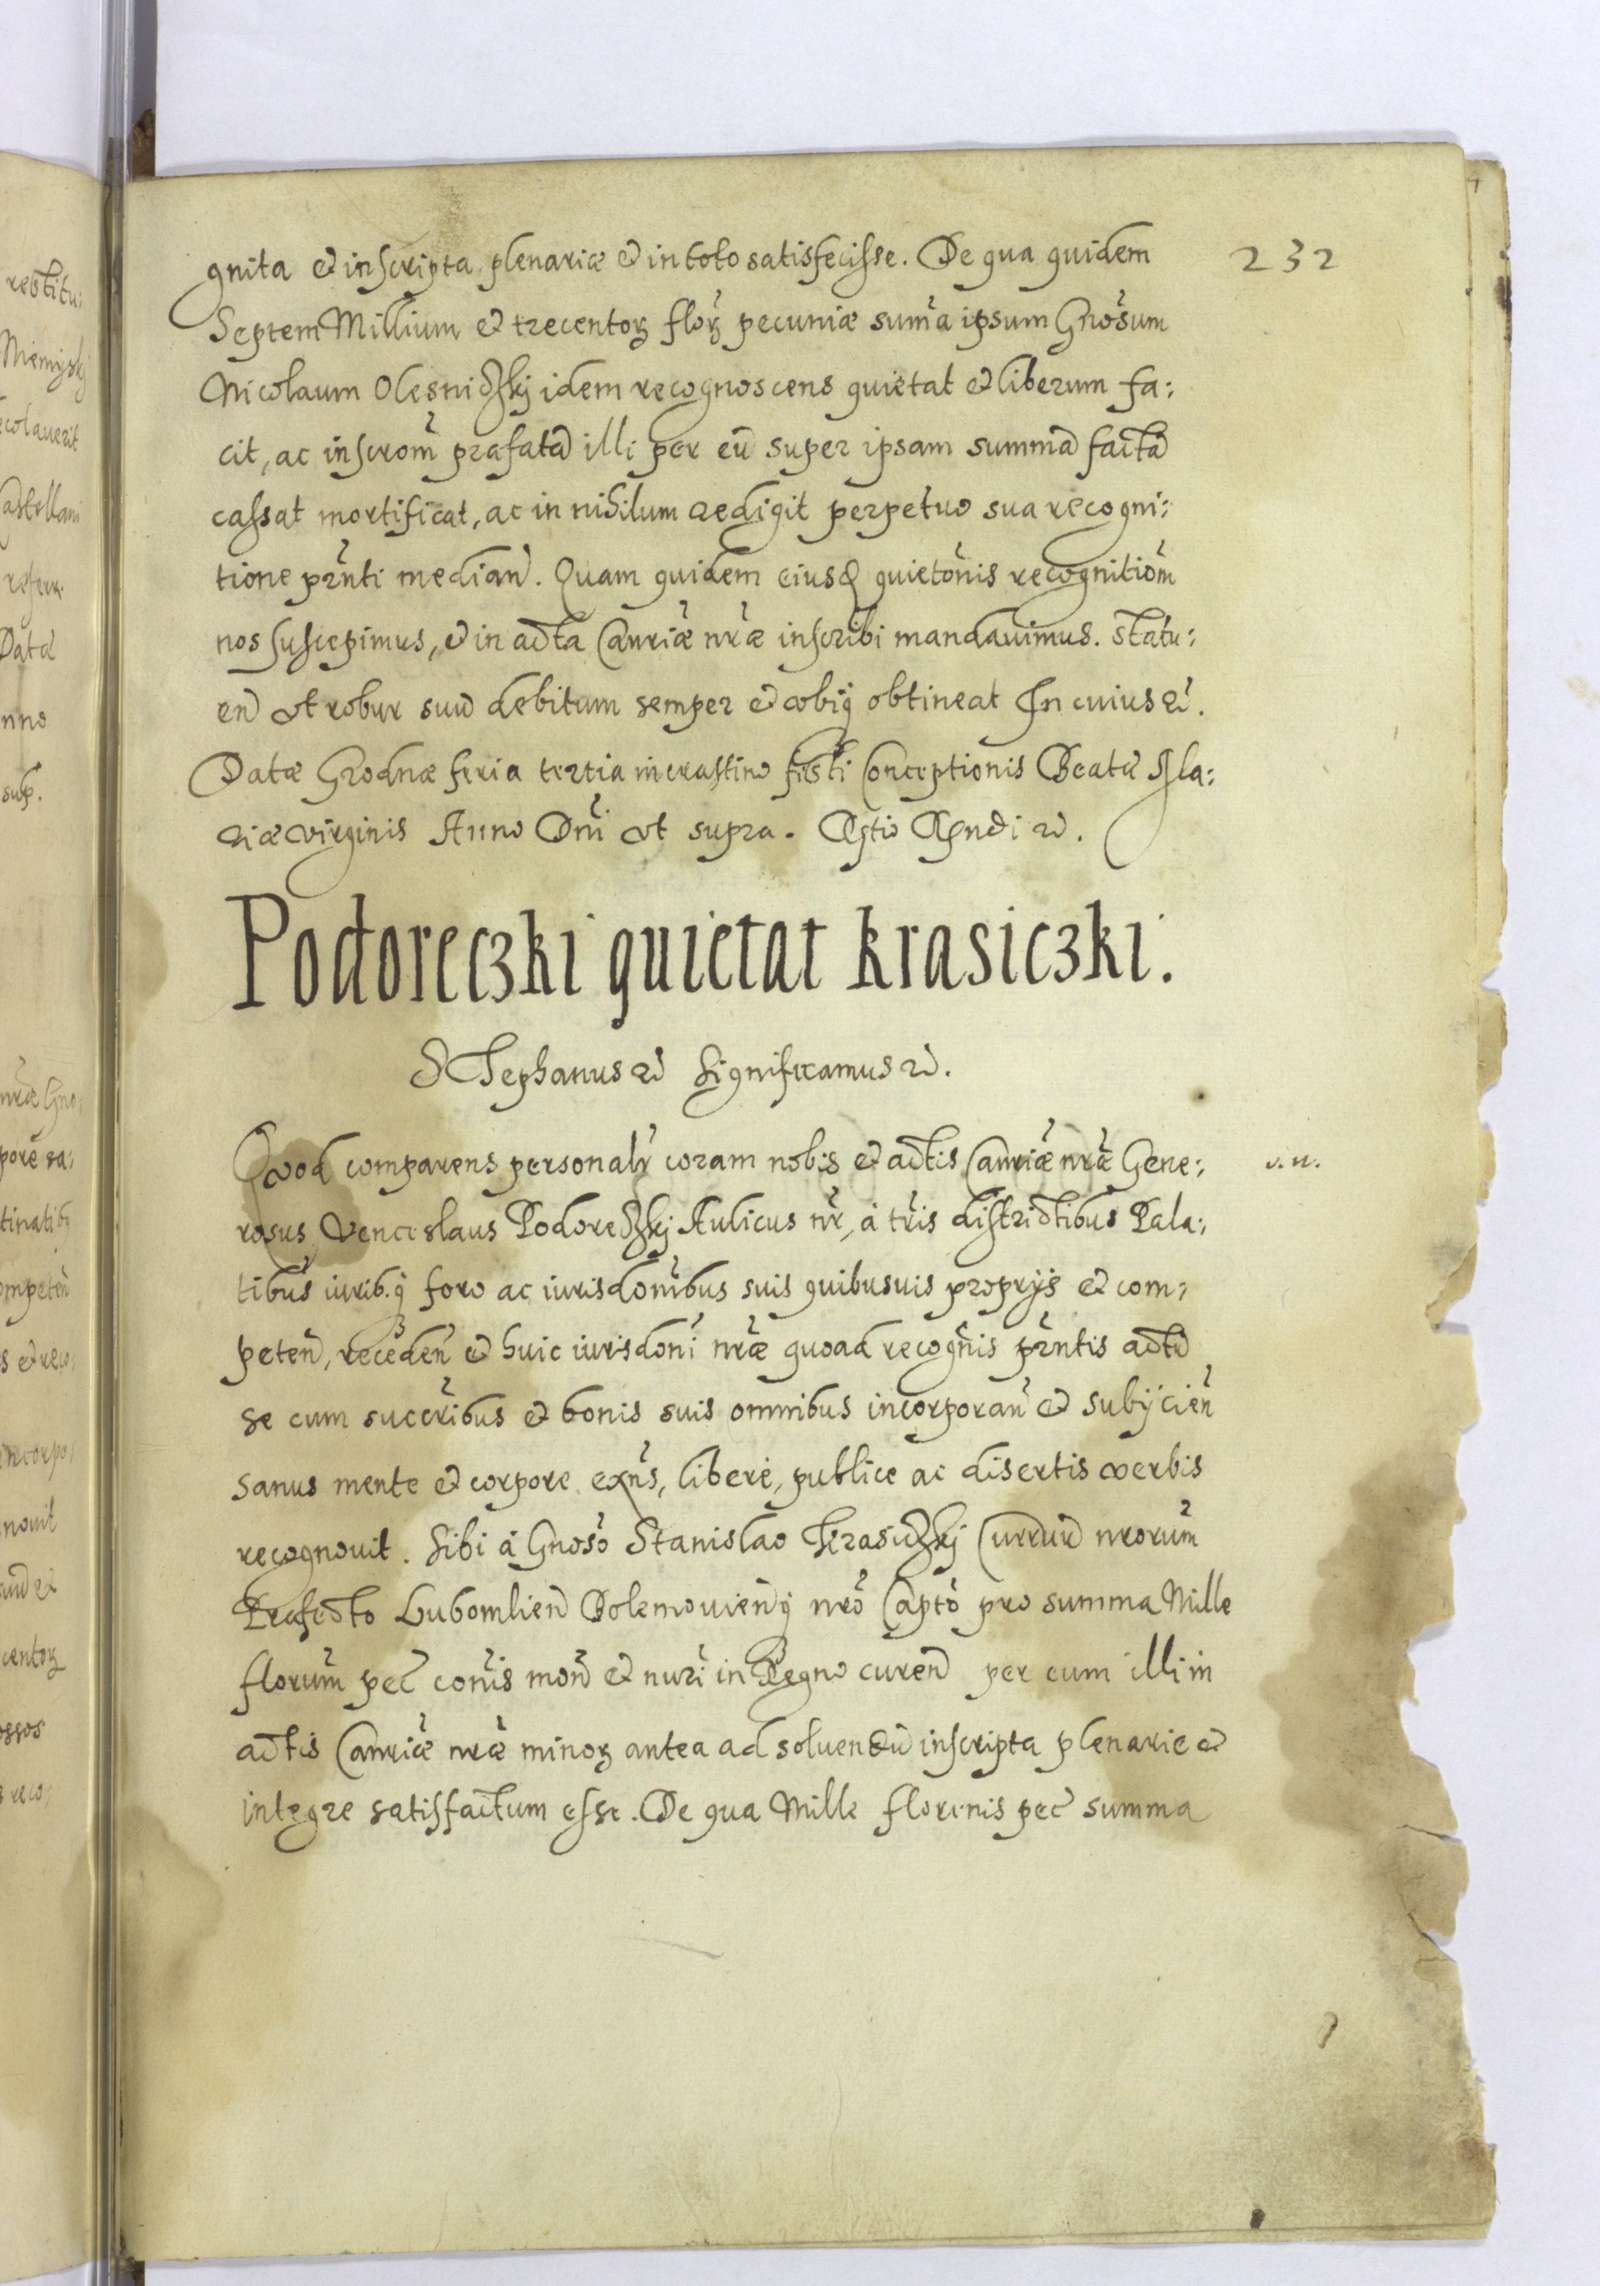 232
gnita et inscripta plenariæ et in toto satisfecisse. De qua quidem
Septem Millium et trecentoꝝ floꝝ pecuniæ sum̃a ipsum Gnõsum
Nicolaum Olesniczkj idem recognoscens quietat et liberum fa:
cit, ac inscrom̃ præfatã illi per eũ super ipsam summã factã
cassat mortificat, ac in nihilum redigit perpetuo sua recogni:
tione prñti median̄. Quam quidem eiusq̃ quietõnis recognitiom̃
nos suscepimus, et in acta Canriæ nr̃æ inscribi mandauimus. Statu:
en̄ vt robur suũ debitum semper et vbiq̃ obtineat In cuius et̃.
Datæ Grodnæ feria tertia in crastino festi Conceptionis Beatæ Ma:
riæ virginis Anno Dñi vt supra.
Podoreczki quietat Krasiczki.
Stephanus et̃ Significamus et̃.
Quod comparens personalr̃ coram nobis et actis Canriæ nr̃æ Gene:
v. n.
rosus Venceslaus Podoreczkj Aulicus nr̃, à tr̃is districtibus Pala:
tibus iurib.q̃ foro ac iurisdonĩbus suis quibusuis proprijs et com:
peteñ, recedeñ et huic iurisdoni nr̃æ quoad recogñis prñtis actũ
se cum succr̃ibus et bonis suis omnibus incorporañ et subijcieñ
sanus mente et corpore exñs, liberè, publice ac disertis verbis
recognouit. Sibi à Gnosõ Stanislao Krasiczkj Curruũ nrorum̃
Præfecto Lubomlien̄ Bolemouien̄q̃ nrõ Captõ pro summa Mille
florum̃ pec̃ conĩs mon̄ et nurĩ in Regno curen̄ per eum illi in
actis Canriæ nr̃æ minoꝝ antea ad soluendũ inscripta plenarie et
integre satisfactum esse. De qua Mille florenis pec̃ summa